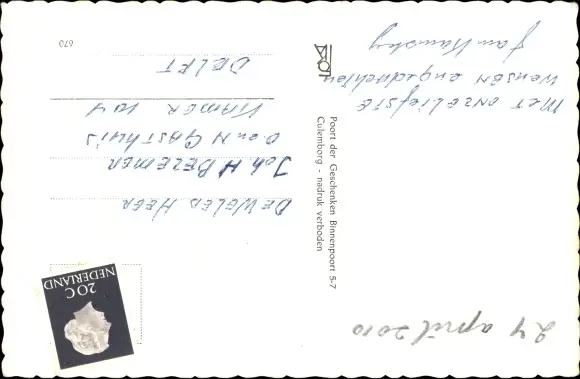 24 april 2010
MET ONZE LIEFSTE
WENSEN ONGEDACHTEN
Poort der Geschenken Binnenpoort 5-7
Culemborg - nadruk verboden
NEDERLAND
20 C
DE WELED HEER
Joh H BEZEMER
O en N GASTHUIS
KAMER 104
DELFT
670